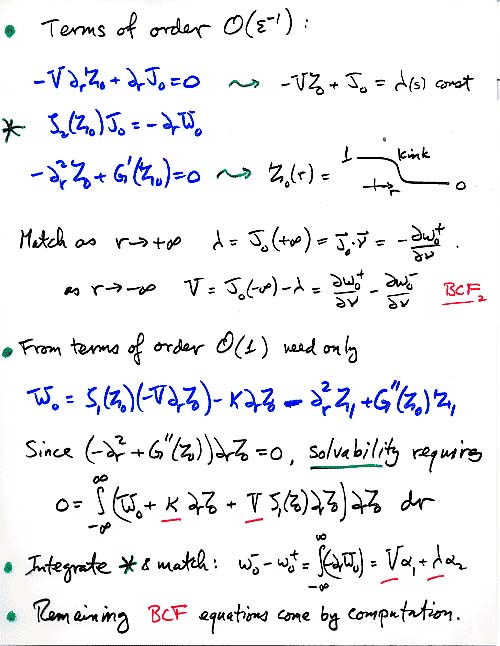 • Terms of order O(ε⁻¹):
-V∂ᵣZ₀ + ∂ᵣJ₀ = 0 ⤳ -VZ₀ + J₀ = λ(s) const
* S₂(Z₀)J₀ = -∂ᵣW₀
-∂ᵣ²Z₀ + G'(Z₀) = 0 ⤳ Z₀(r) = 1 kink r 0
Match as r→+∞ λ = J₀(+∞) = J⃗₀·ν⃗ = -∂w₀⁺/∂ν.
as r→-∞ V = J₀(-∞) - λ = ∂w₀⁺/∂ν - ∂w₀⁻/∂ν BCF₂
• From terms of order O(1) need only
W₀ = S₁(Z₀)(-V∂ᵣZ₀) - K∂ᵣZ₀ - ∂ᵣ²Z₁ + G''(Z₀)Z₁
Since (-∂ᵣ² + G''(Z₀))∂ᵣZ₀ = 0, solvability requires
0 = ∫_{-∞}^{∞} (W₀ + K ∂ᵣZ₀ + V S₁(Z₀)∂ᵣZ₀) ∂ᵣZ₀ dr
• Integrate * & match: w₀⁻ - w₀⁺ = ∫_{-∞}^{∞} (-∂ᵣW₀) = Vα₁ + λα₂
• Remaining BCF equations come by computation.